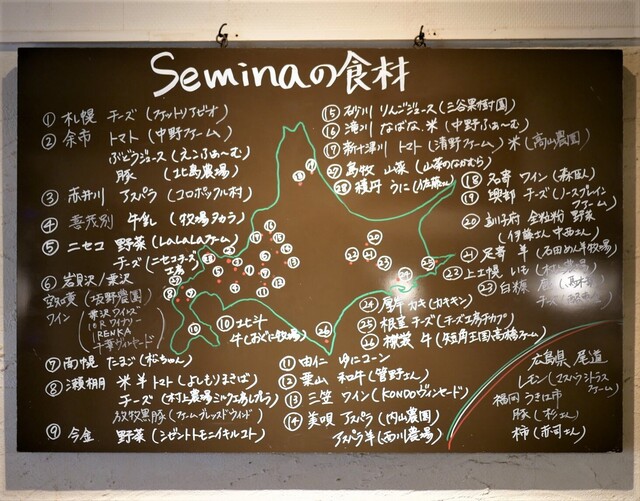 Seminaの食材
① 札幌 チーズ (ファットリアビオ)
② 余市 トマト (中野ファーム)
ぶどうジュース (えこふぁ〜む)
豚 (北島農場)
③ 赤井川 アスパラ (コロポックル村)
④ 喜茂別 牛乳 (牧場タカラ)
⑤ ニセコ 野菜 (LaLaLaファーム)
チーズ (ニセコチーズ工房)
⑥ 岩見沢/栗沢
ワイン
(栗沢ワインズ
10Rワイナリー
⑦ 南幌 たまご (松ちゃん)
⑧ 瀬棚 米 羊 トマト (よしもりまきば)
チーズ (村山農場
放牧黒豚 (ファームブレッスドウインド)
⑨ 今金 野菜
⑩ 北斗
牛 (おぐに牧場)
⑪ 由仁 ゆにコーン
⑫ 栗山 和牛 (菅野さん)
⑬ 三笠 ワイン (KONDOヴィンヤード)
⑭ 美唄 アスパラ (内山農園)
アスパラ羊 (西川農場)
⑮ 砂川 りんごジュース (三谷果樹園)
⑯ 滝川 なばな、米 (中野ふぁ〜む)
⑰ 新十津川 トマト (清野ファーム) 米 (高山農園)
㉗ 島牧 山菜 (山菜のなかむら)
㉘ 積丹 うに (佐藤さん)
⑱ 名寄 ワイン (森臥さん)
⑲ 興部 チーズ (ノースプレインファーム)
⑳ 訓子府 全粒粉 野菜
(伊藤さん 中西さん)
㉑ 足寄 羊 (石田めん羊牧場)
㉒ 上士幌 いも
㉓ 白糠
チーズ
㉔ 厚岸 カキ (カキキン)
㉕ 根室 チーズ (チーズ工房チカプ)
㉖ 襟裳 牛 (短角王国高橋ファーム)
広島県 尾道
レモン
福岡 うきは市
豚 (杉さん)
柿 (赤司さん)